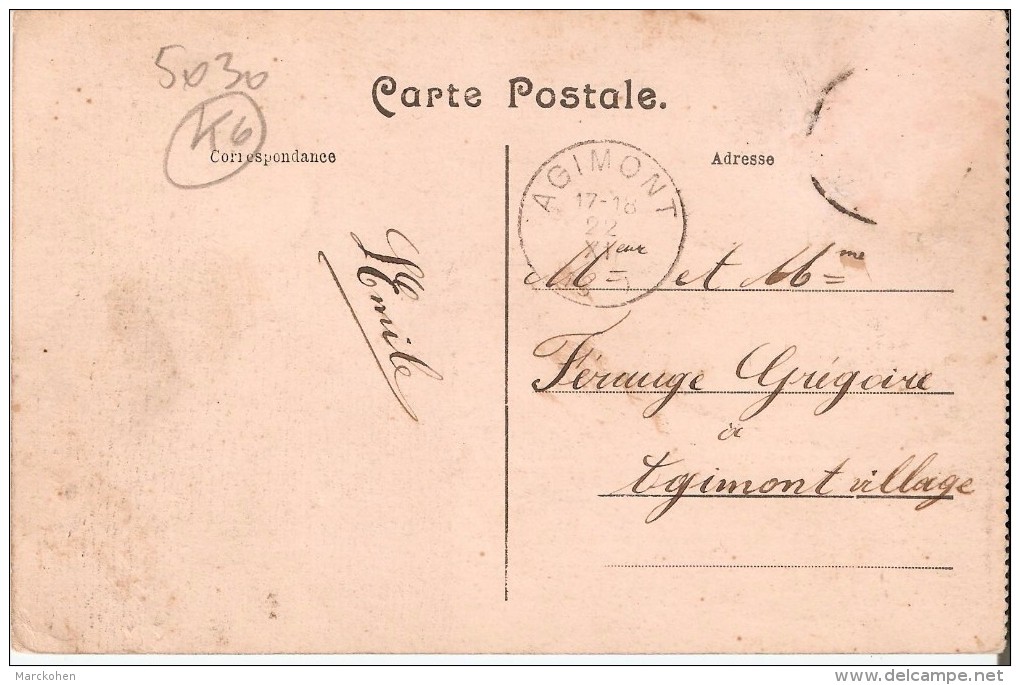 5030
K6
Carte Postale.
Correspondance
Adresse
AGIMONT
17-18
22
XI
Emile
Mr eur et Mme
Férauge Grégoire
à
Agimont village
Marckohen
delcampe.net